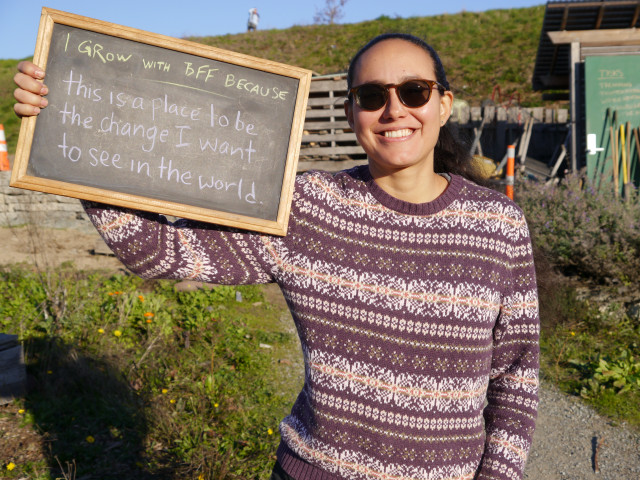 I GROW WITH BFF BECAUSE
this is a place to be
the change I want
to see in the world.